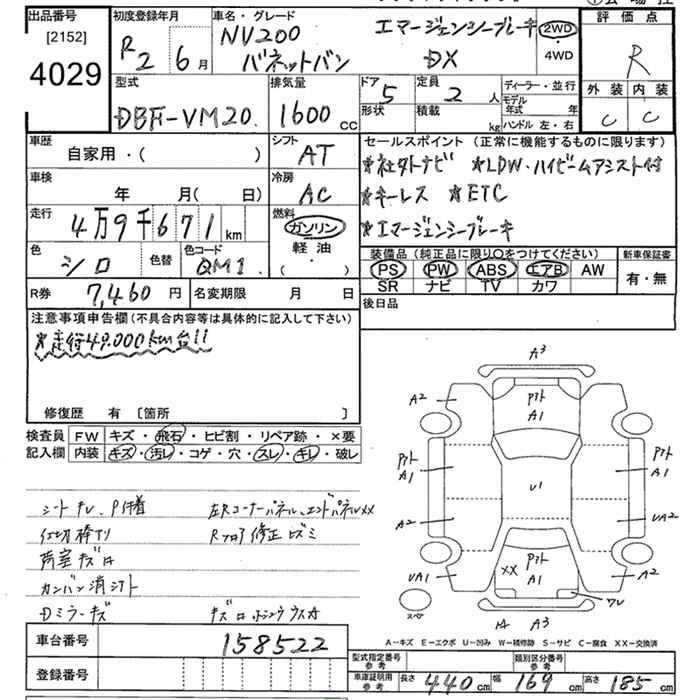 出品番号 初度登録年月 車名・グレード エマージェンシーブレーキ 2WD 評価点
[2152] R2 6月 NV200 バネットバン DX ・4WD R
4029 型式 排気量 ドア 5 定員 2人 ディーラー・並行 外装 内装
DBF-VM20. 1600cc 形状 積載 kg モデル年式 年 C C
ハンドル 左・右
車歴 シフト セールスポイント(正常に機能するものに限ります)
自家用・( ) AT ★社外ナビ ★LDW・ハイビームアシスト付
車検 冷房 ★キーレス ★ETC
年 月( 日) AC ★エマージェンシーブレーキ
走行 4万9千671km 燃料 ガソリン
軽油
( ・ )
色 シロ 色替 色コード QM1. 装備品(純正品に限り○をつけてください) 新車保証書
PS PW ABS エアB AW 有・無
SR ナビ TV カワ
R券 7,460円 名変期限 月 日 後日品
注意事項申告欄(不具合内容等は具体的に記入して下さい)
★走行49.000km台!!
修復歴 有 [箇所 ]
検査員 FW キズ・飛石・ヒビ割・リペア跡・×要
記入欄 内装 キズ・汚レ・コゲ・穴・スレ・キレ・破レ
A3
A2 Pクト A1 A2
Pクト A1 U1 Pクト A1
A2 UA2
UA1 XX Pクト A1 A2
ワレ
スペア A3
左Rコーナーパネル、エンドパネルXX
Rフロア修正
荷室キズ
カンバン消シアト
Dミラーキズ
A-キズ E-エクボ U-凹み W-補修跡 S-サビ C-腐食 XX-交換済
車台番号 158522
登録番号
型式指定番号 参考 類別区分番号 参考
車庫証明用 参考 長さ 440cm 幅 169cm 高さ 185cm